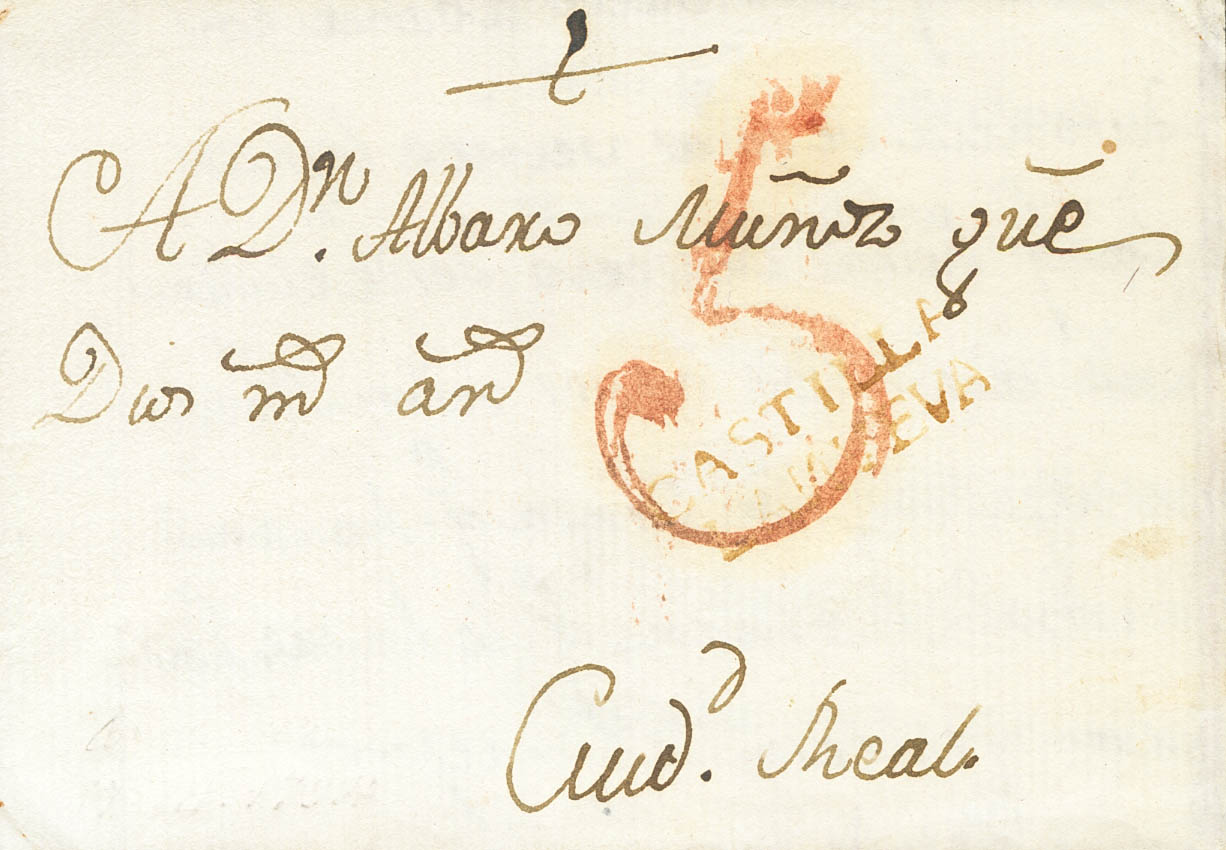 A Dⁿ. Albaro Muñoz que
Dios mᵈ anᵈ
5
CASTILLA
LA NUEVA
Ciudᵈ. Rheal.